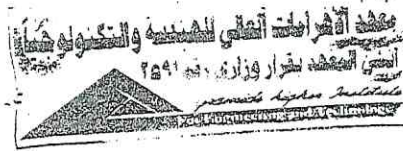 معهد الأهرامات العالي للهندسة والتكنولوجيا
أنشئ المعهد بقرار وزارى رقم ٢٥٩١
pyramids higher Institute
for Engineering and